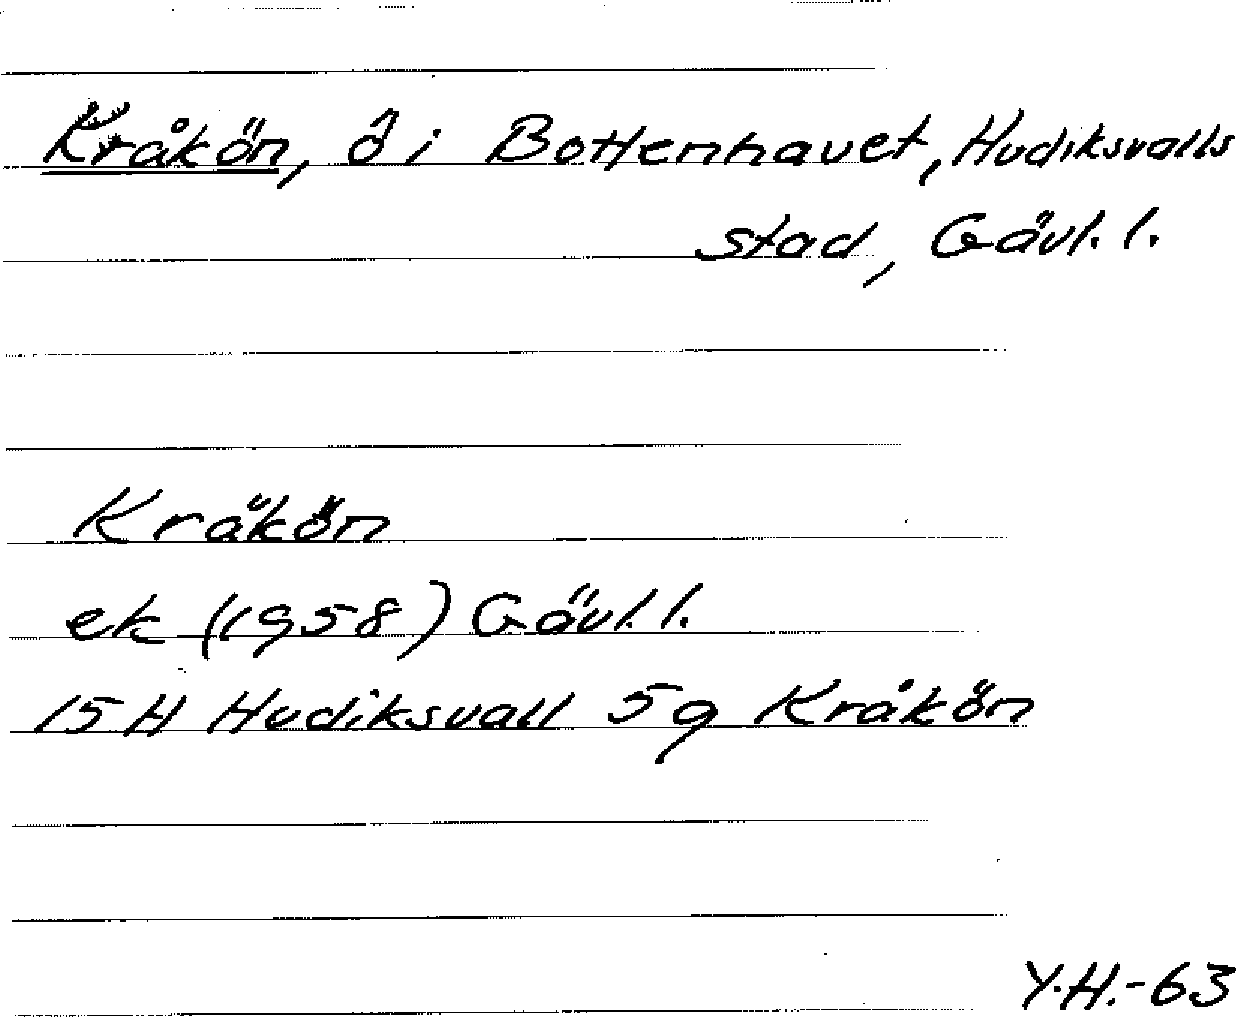 Kråkön, ö i Bottenhavet, Hudiksvalls
stad, Gävl. l.
Kråkön
ek (1958) Gävl. l.
15 H Hudiksvall 5g Kråkön
Y.H.-63